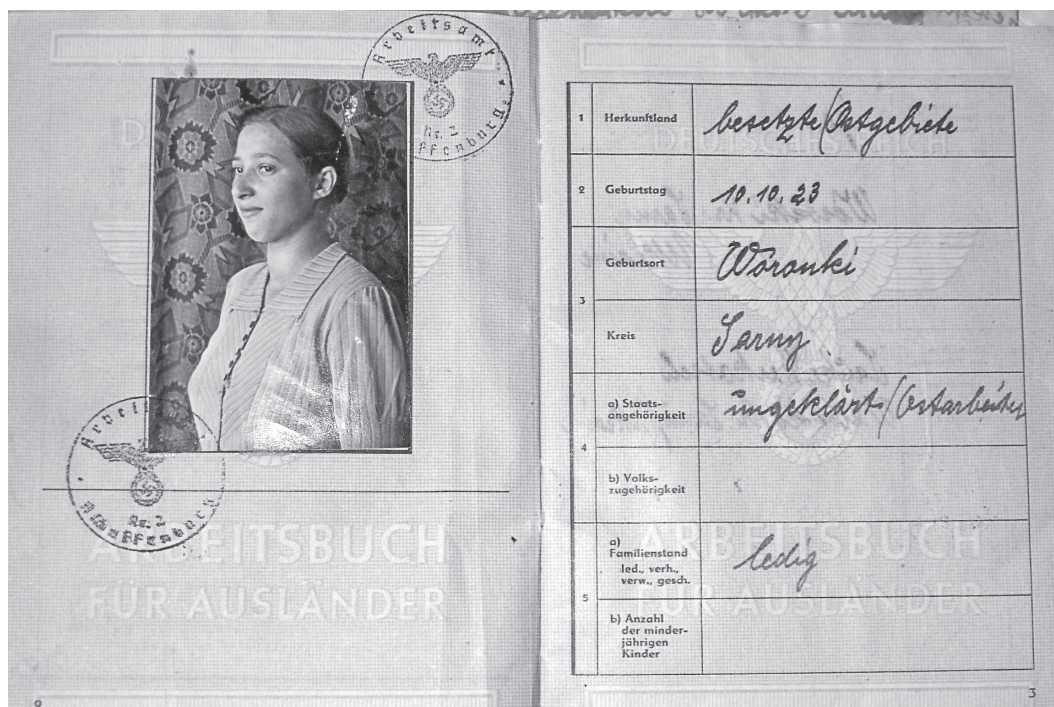 Arbeitsamt
Nr. 2
Aschaffenburg
Arbeitsamt
Nr. 2
Aschaffenburg
ARBEITSBUCH
FÜR AUSLÄNDER
DEUTSCHES REICH
1 Herkunftland besetzte/Ostgebiete
2 Geburtstag 10.10.23
3 Geburtsort Woronki
Kreis Sarny
4 a) Staats-
angehörigkeit ungeklärt/Ostarbeiter
b) Volks-
zugehörigkeit
5 a)
Familienstand ledig
led., verh.,
verw., gesch.
b) Anzahl
der minder-
jährigen
Kinder
ARBEITSBUCH
FÜR AUSLÄNDER
3